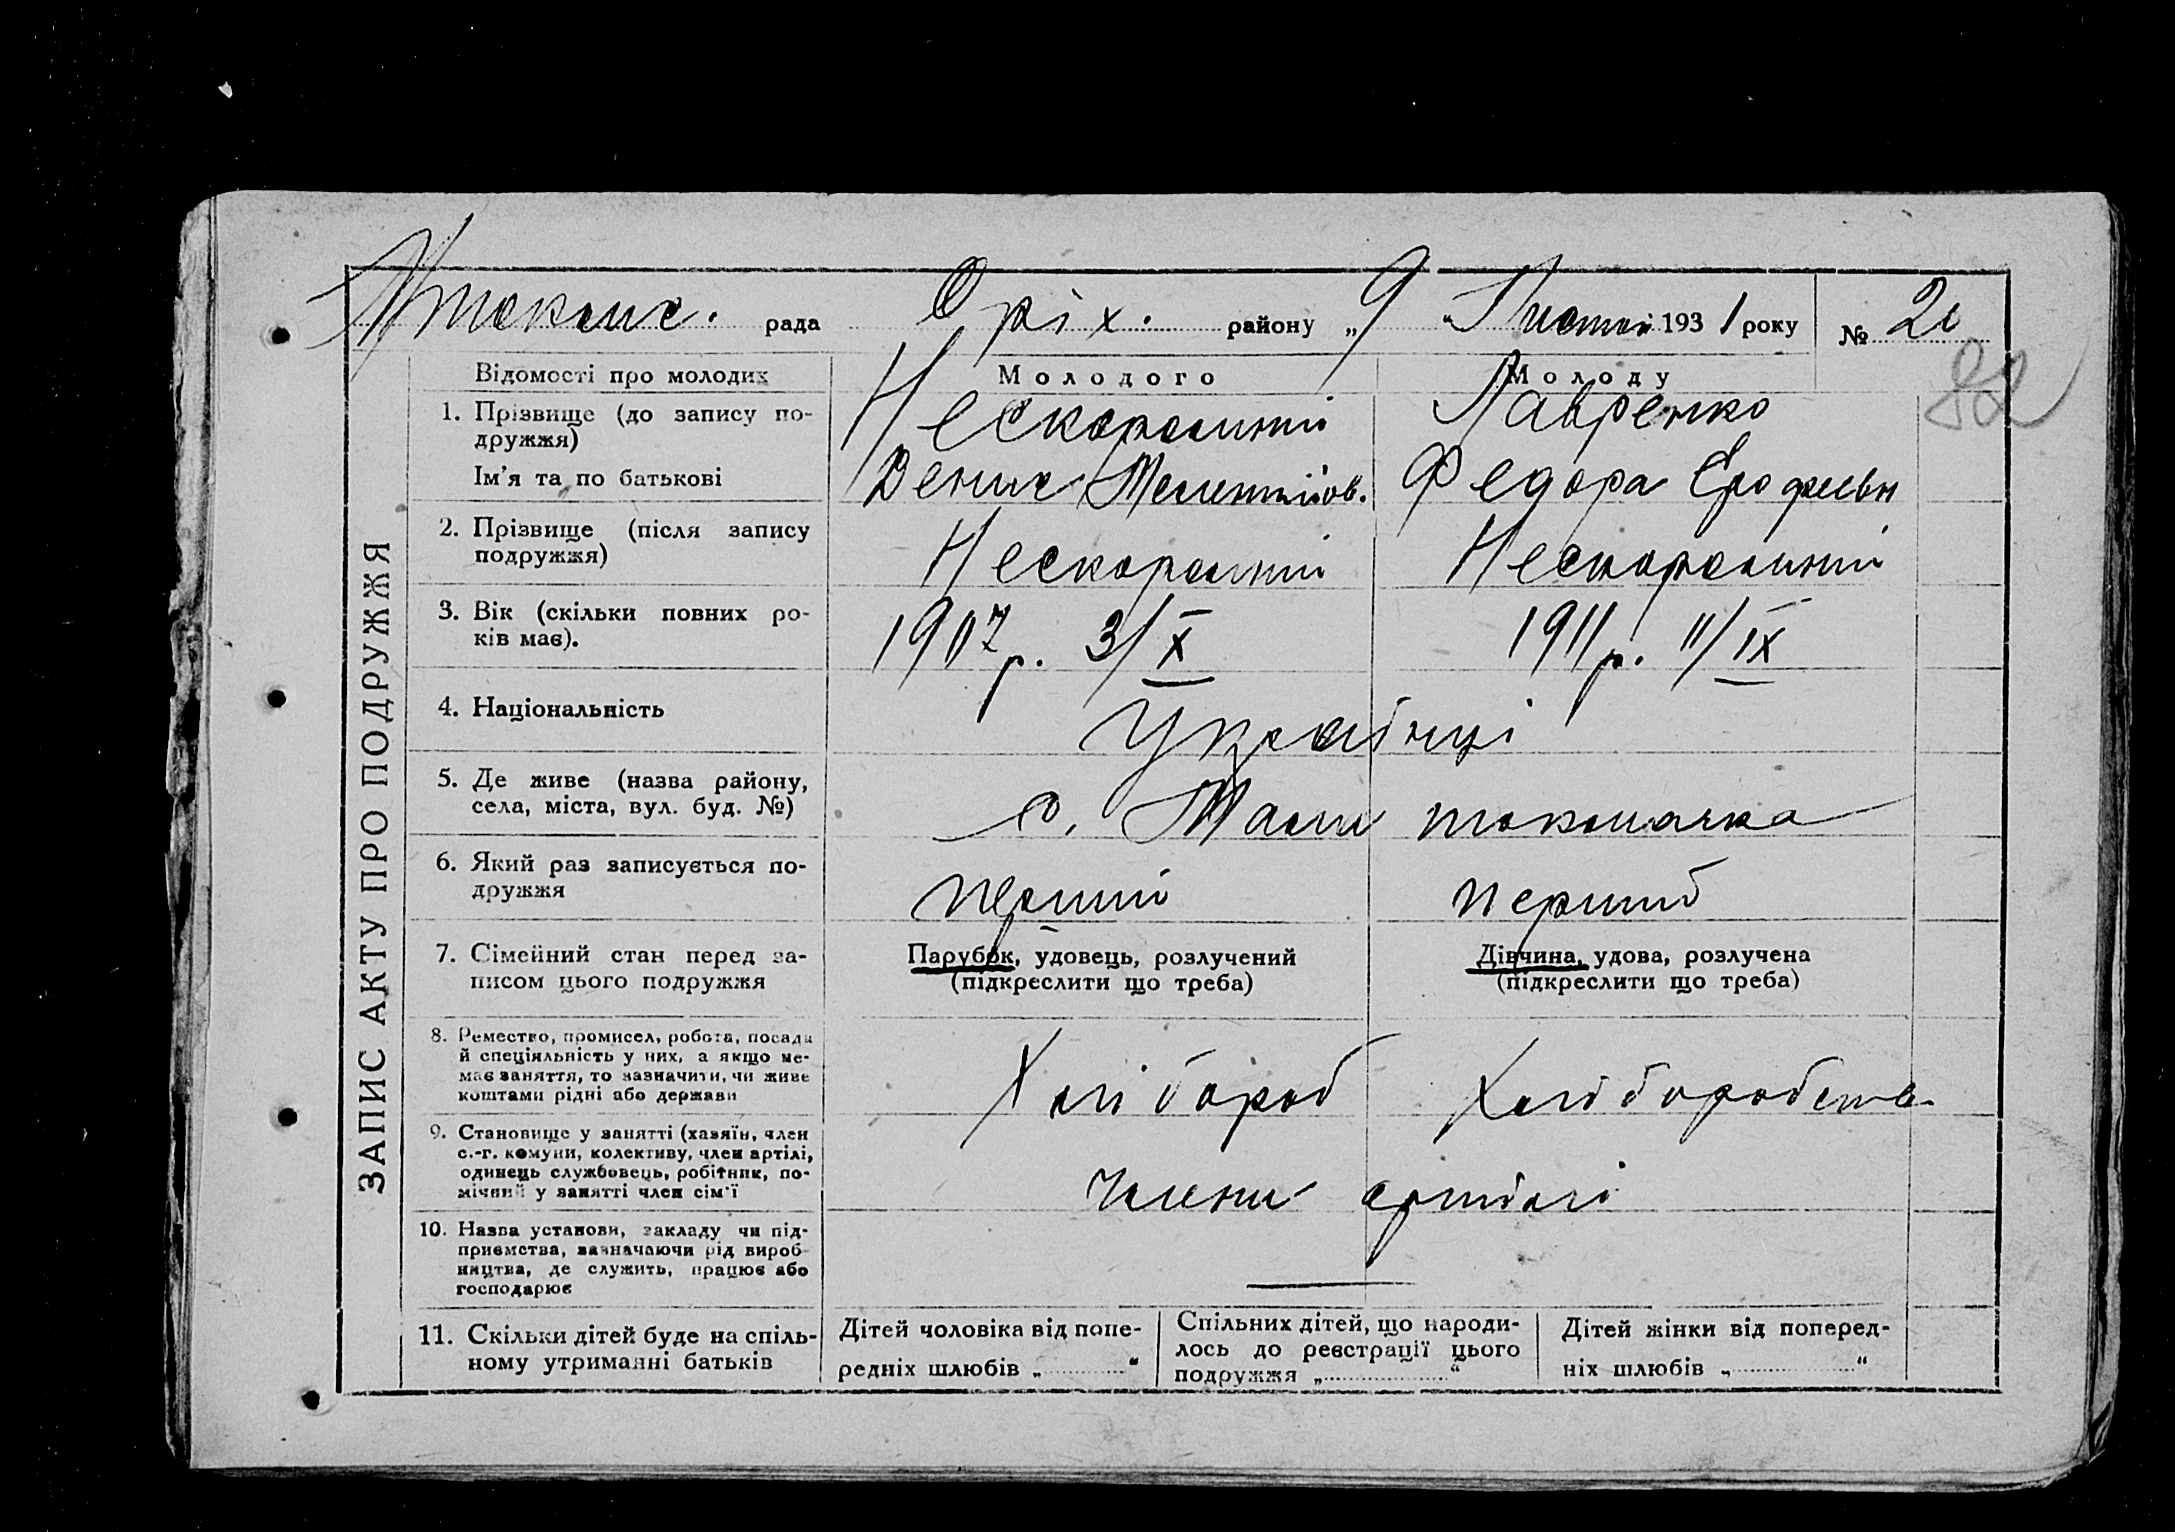 Мтокмс. рада Оріх. району „9 “ Листоп 1931 року № 20
82
ЗАПИС АКТУ ПРО ПОДРУЖЖЯ
Відомості про молодих Молодого Молоду
1. Прізвище (до запису по- Нескоромний Лавренко
дружжя)
Ім'я та по батькові Денис Мелентійов. Федора Єрофеевн
2. Прізвище (після запису Нескоромний Нескоромний
подружжя)
3. Вік (скільки повних ро- 1907 р. 3/X 1911 р. 11/IX
ків має).
4. Національність Українці
5. Де живе (назва району, с. Мала токмачка
села, міста, вул. буд. №)
6. Який раз записується по- перший перший
дружжя
7. Сімейний стан перед за- Парубок, удовець, розлучений Дівчина, удова, розлучена
писом цього подружжя (підкреслити що треба) (підкреслити що треба)
8. Ремество, промисел, робота, посада
й спеціяльність у них, а якщо не-
має заняття, то зазначити, чи живе Хлібороб Хліборобств.
коштами рідні або держави
9. Становище у занятті (хазяїн, член
с.-г. комуни, колективу, член артілі,
одинець службовець, робітник, по- члени артілі
мічний у занятті член сім'ї
10. Назва установи, закладу чи під-
приємства, зазначаючи рід вироб-
ництва, де служить, працює або
господарює
11. Скільки дітей буде на спіль- Дітей чоловіка від попе- Спільних дітей, що народи- Дітей жінки від поперед-
ному утриманні батьків редніх шлюбів „ “ лось до реєстрації цього ніх шлюбів „ “
подружжя „ “